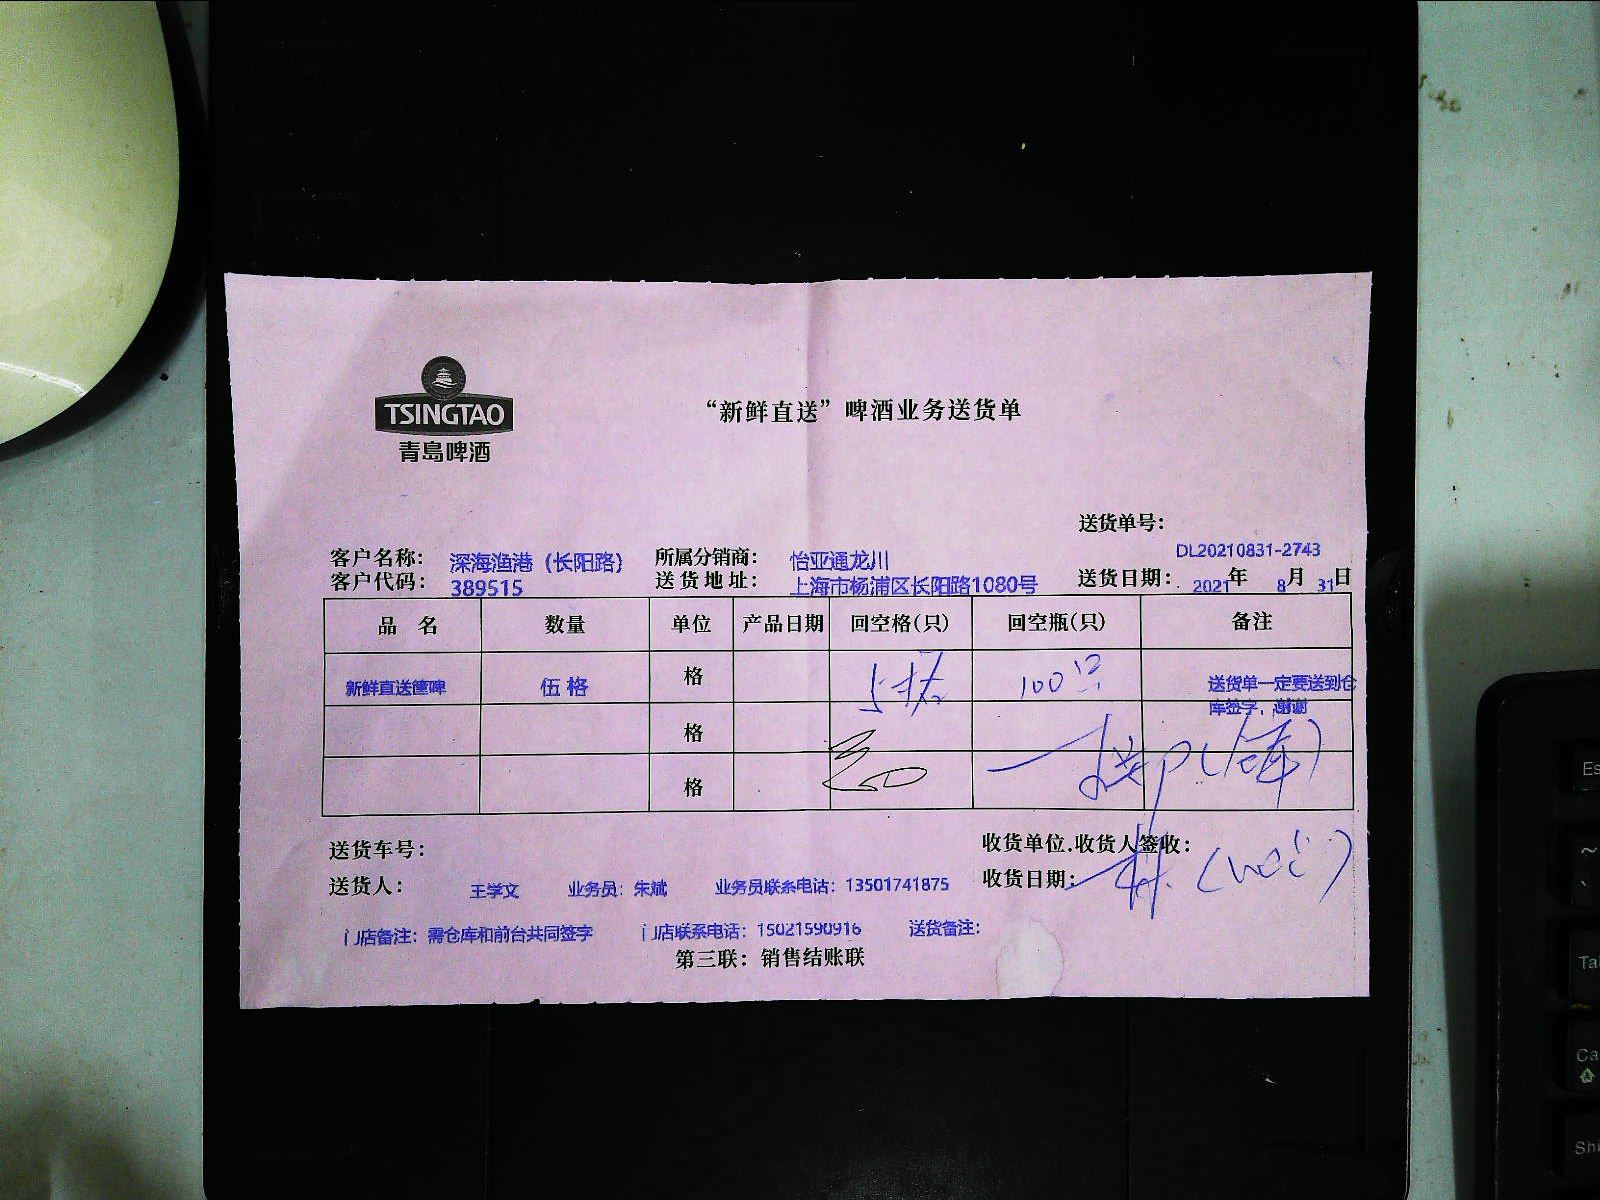 TSINGTAO
青島啤酒
“新鲜直送”啤酒业务送货单
送货单号：
DL20210831-2743
客户名称： 深海渔港（长阳路） 所属分销商： 怡亚通龙川
客户代码： 389515 送货地址： 上海市杨浦区长阳路1080号 送货日期： 2021年 8月 31日
品 名 数量 单位 产品日期 回空格(只) 回空瓶(只) 备注
新鲜直送筐啤 伍格 格 5格 100只 送货单一定要送到仓
库签字，谢谢
格
格 (仓库)
送货车号： 收货单位.收货人签收：
送货人： 王学文 业务员：朱斌 业务员联系电话：13501741875 收货日期：
门店备注：需仓库和前台共同签字 门店联系电话：15021590916 送货备注：
第三联：销售结账联
Es
~
Ta
Ca
Shi